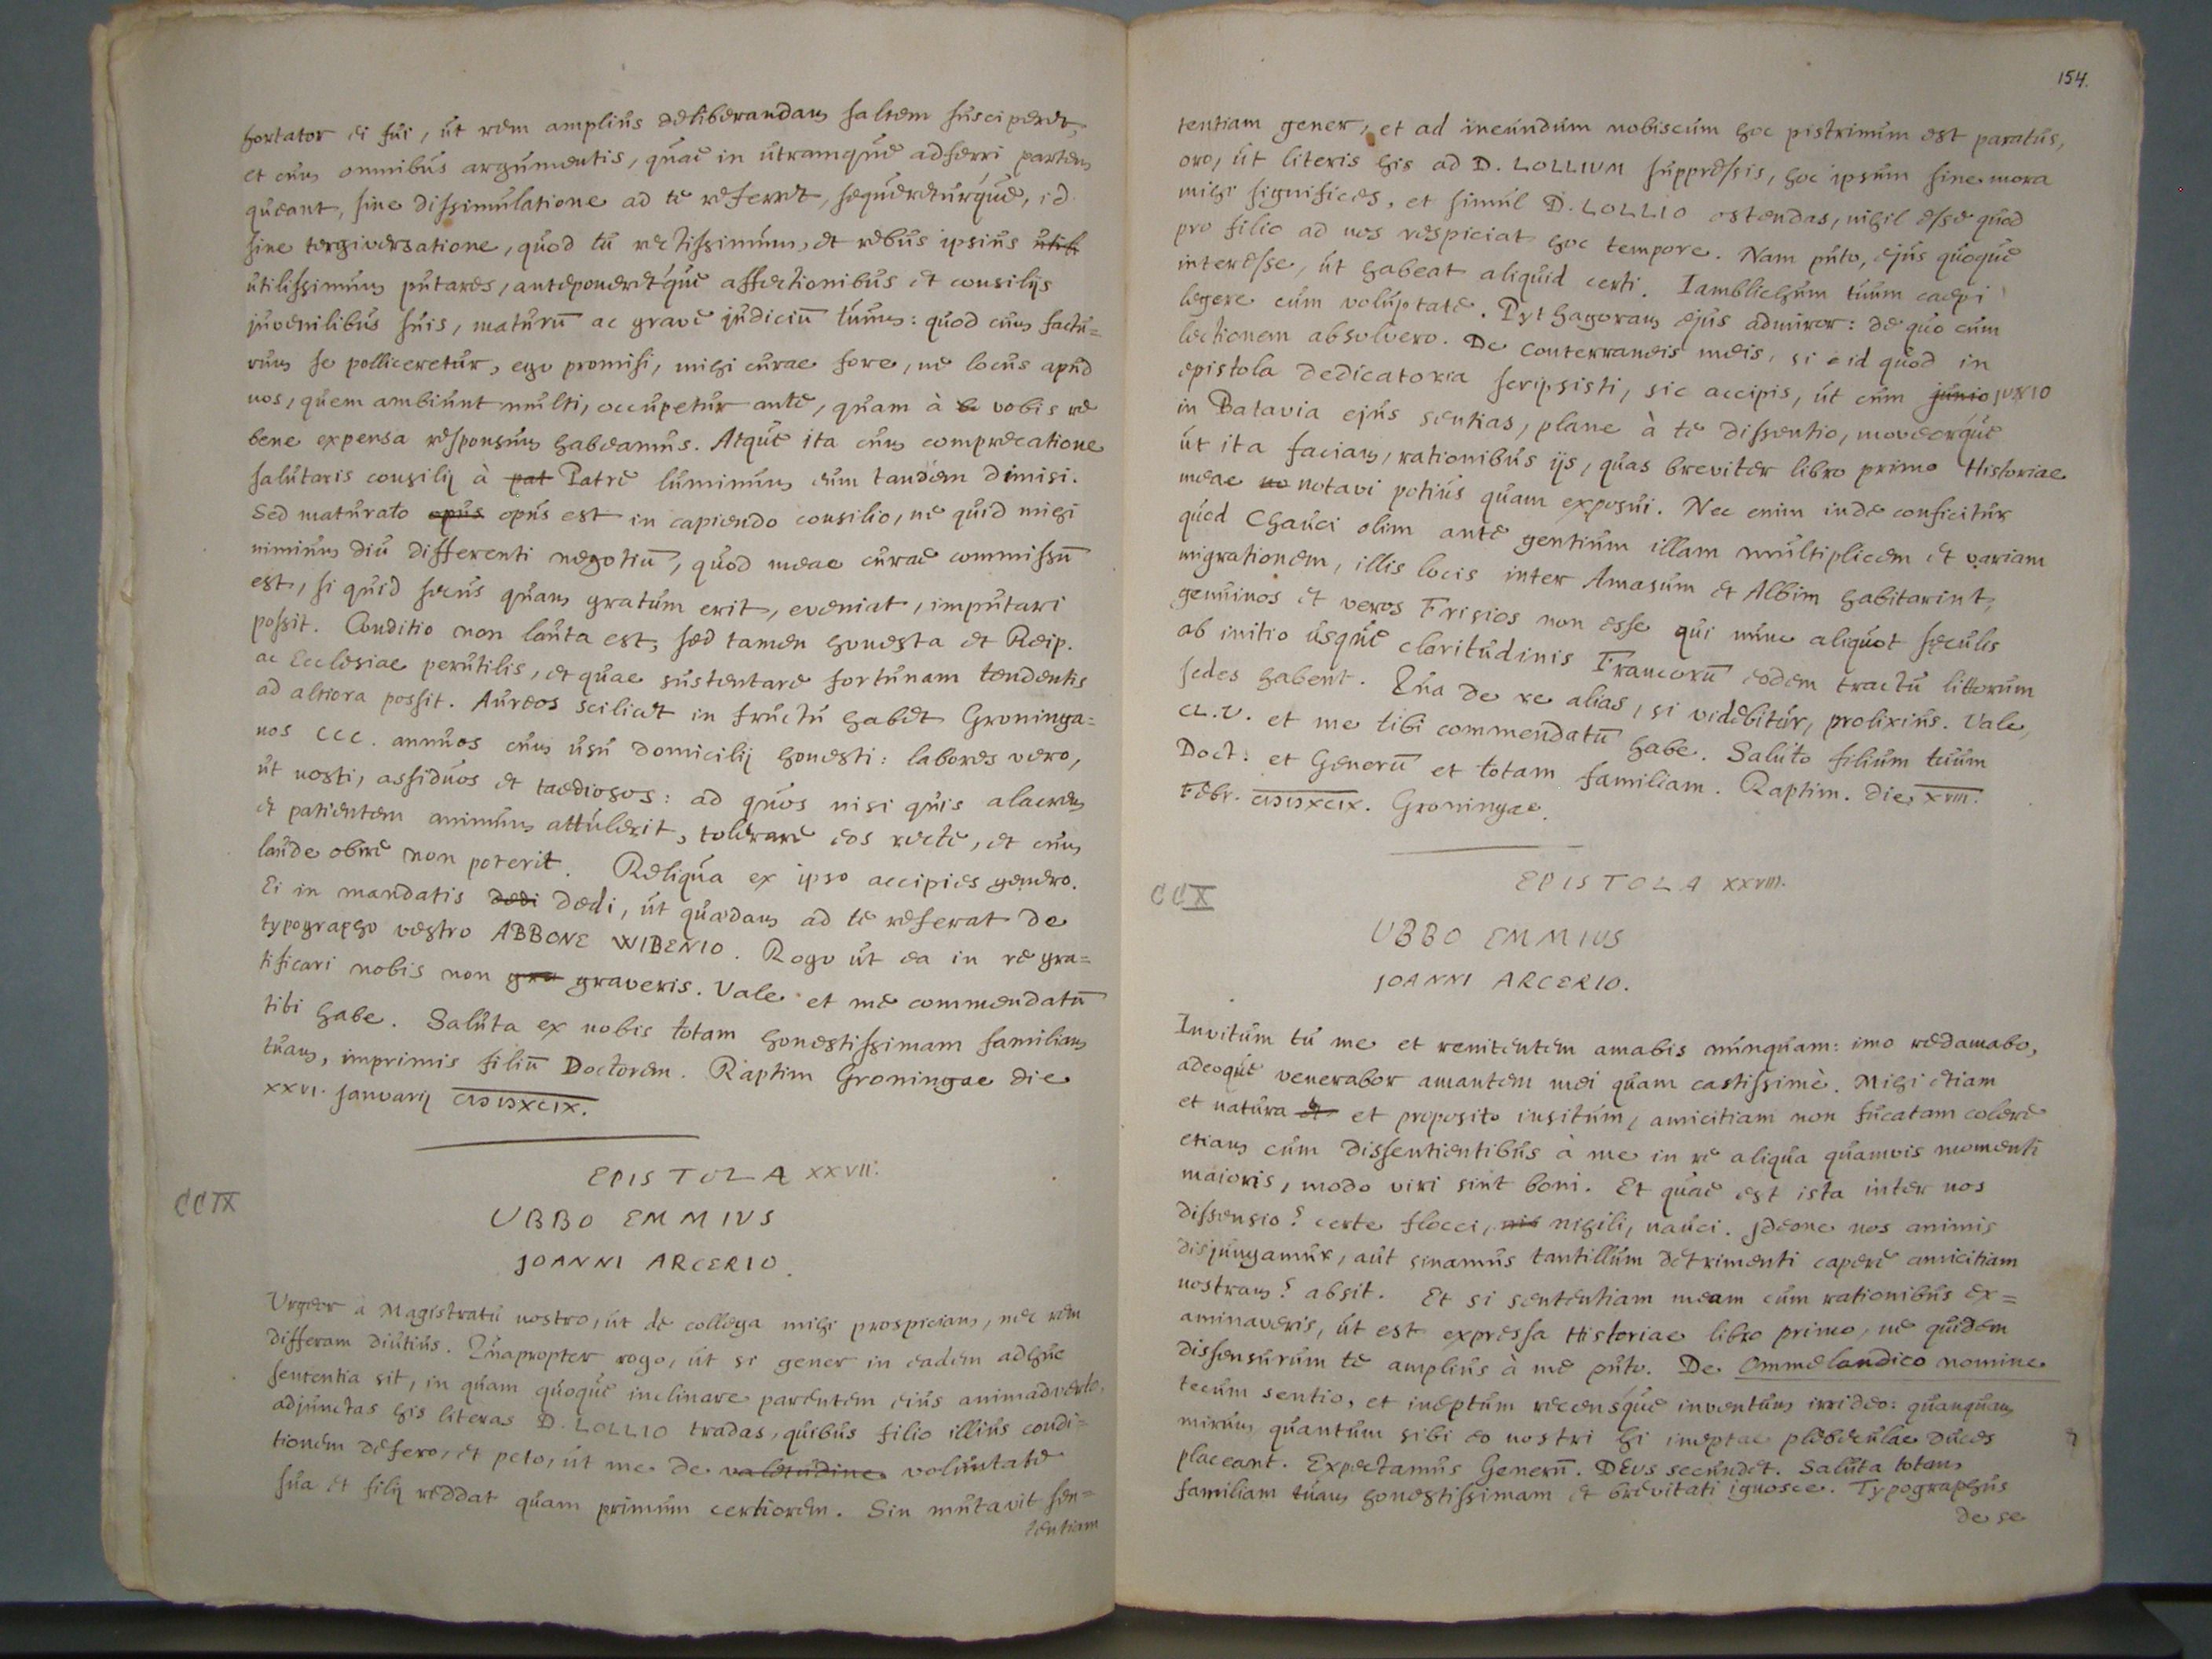 hortator ei fui, ut rem amplius deliberandam saltem susciperet,
et cum omnibus argumentis, quae in utramque adferri partem
queant, sine dissimulatione ad te referret, sequereturque, id
sine tergiversatione, quod tu rectissimum, et rebus ipsius utili
utilissimum putares, anteponeretque affectionibus et consilijs
juvenilibus suis, maturū ac grave judiciū tuum: quod cum factu=
rum se polliceretur, ego promisi, mihi curae fore, ne locus apud
nos, quem ambiunt multi, occupetur ante, quam à vobis re
bene expensa responsum habeamus. Atque ita cum comprecatione
salutaris consilij à pat Patre luminum eum tandem dimisi.
Sed maturato opus opus est in capiendo consilio, ne quid mihi
nimium diu differenti negotiū, quod meae curae commissū
est, si quid secus quam gratum erit, eveniat, imputari
possit. Conditio non lauta est, sed tamen honesta et Reip.
ac Ecclesiae perutilis, et quae sustentare fortunam tendentis
ad altiora possit. Aureos scilicet in fructu habet Groninga=
nos CCC. annuos cum usu domicilij honesti: labores vero,
ut nosti, assiduos et taediosos: ad quos nisi quis alacrem
et patientem animum attulerit, tolerare eos recte, et cum
laude obire non poterit. Reliqua ex ipso accipies genero.
Ei in mandatis dedi dedi, ut quaedam ad te referat de
typographo vestro ABBONE WIBENIO. Rogo ut ea in re gra=
tificari nobis non gra graveris. Vale et me commendatū
tibi habe. Saluta ex nobis totam honestissimam familiam
tuam, imprimis filiū Doctorem. Raptim Groningae die
XXVI. Januarij CIƆIƆXCIX.
EPISTOLA XXVII.
CCIX
UBBO EMMIUS
JOANNI ARCERIO.
Urgeor a Magistratu nostro, ut de collega mihi prospiciam, nec rem
differam diutius. Quapropter rogo, ut si gener in eadem adhuc
sententia sit, in quam quoque inclinare parentem eius animadverto,
adjunctas his literas D. LOLLIO tradas, quibus filio illius condi=
tionem defero, et peto, ut me de valetudine voluntate
sua et filij reddat quam primum certiorem. Sin mutavit sen=
tentiam
154.
tentiam gener, et ad ineundum nobiscum hoc pistrinum est paratus,
oro, ut literis his ad D. LOLLIUM suppressis, hoc ipsum sine mora
mihi significes, et simul D. LOLLIO ostendas, nihil esse quod
pro filio ad nos respiciat hoc tempore. Nam puto, ejus quoque
interesse, ut habeat aliquid certi. Iamblichum tuum caepi
legere cum voluptate. Pythagoram ejus admiror: de quo cum
lectionem absolvero. De conterraneis meis, si id quod in
epistola dedicatoria scripsisti, sic accipis, ut cum junio JUNIO
in Batavia ejus sentias, plane à te dissentio, moveorque
ut ita faciam, rationibus ijs, quas breviter libro primo Historiae
meae no notavi potius quam exposui. Nec enim inde conficitur
quod Chauci olim ante gentium illam multiplicem et variam
migrationem, illis locis inter Amasum et Albim habitarint,
genuinos et veros Frisios non esse qui nunc aliquot seculis
ab initio usque claritudinis Francorū eodem tractu littorum
sedes habent. Qua de re alias, si videbitur, prolixius. Vale,
CL.V. et me tibi commendatū habe. Saluto filium tuum
Doct. et Generū et totam familiam. Raptim. die XVIII.
Febr. CIƆIƆXCIX. Groningae.
EPISTOLA XXVIII.
CCX
UBBO EMMIUS
JOANNI ARCERIO.
Invitum tu me et renitentem amabis nunquam: imo redamabo,
adeoque venerabor amantem mei quam castissimè. Mihi etiam
et natura et et proposito insitum, amicitiam non fucatam colere
etiam cum dissentientibus à me in re aliqua quamvis momenti
maioris, modo viri sint boni. Et quae est ista inter nos
dissensio? certe flocci, nih nihili, nauci. Ideone nos animis
disjungamur, aut sinamus tantillum detrimenti capere amicitiam
nostram? absit. Et si sententiam meam cum rationibus ex=
aminaveris, ut est expressa Historiae libro primo, ne quidem
dissensurum te amplius à me puto. De Ommelandico nomine
tecum sentio, et ineptum recensque inventum irrideo: quanquam
mirum quantum sibi eo nostri hi ineptae plebeculae duces
placeant. Expectamus Generū. DEUS secundet. Saluta totam
familiam tuam honestissimam et brevitati ignosce. Typographus
de se